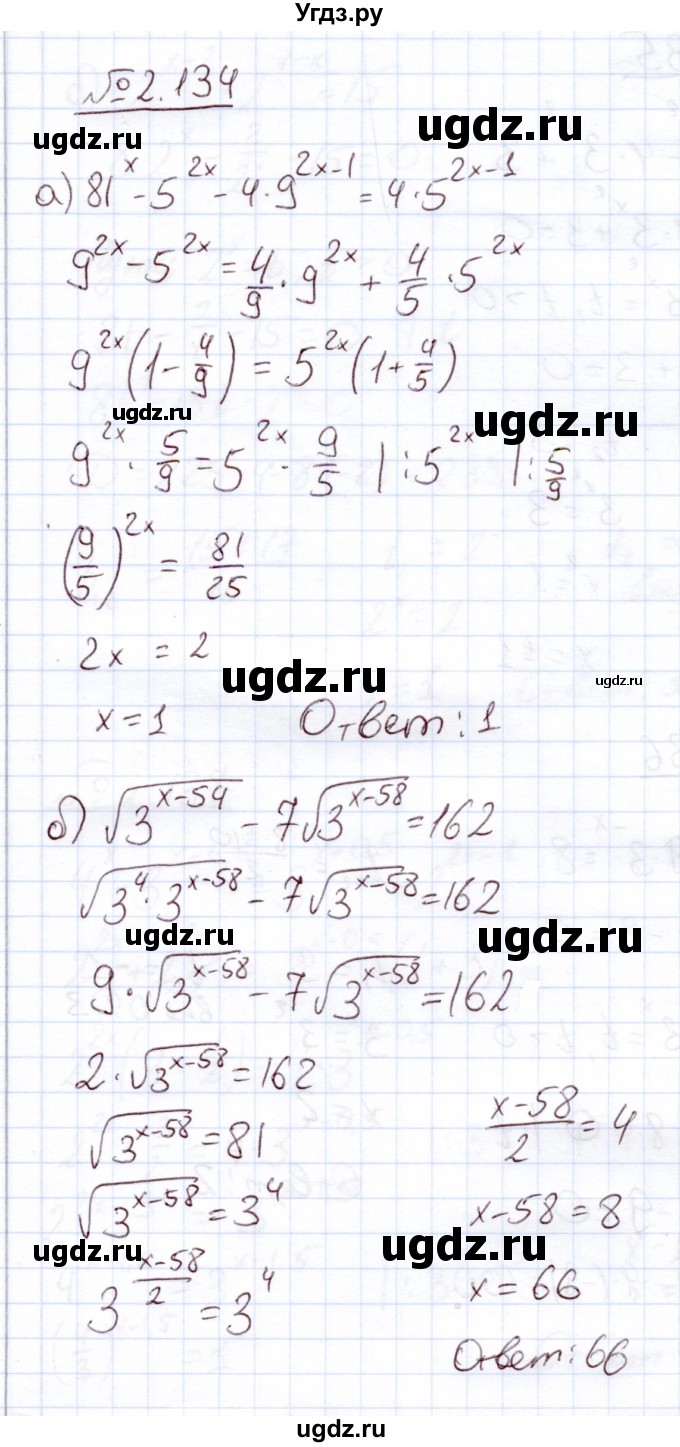 Угдз.ру
№2.134
ugdz.ru
ugdz.ru
а) 81^x - 5^{2x} - 4·9^{2x-1} = 4·5^{2x-1}
9^{2x} - 5^{2x} = 4/9 · 9^{2x} + 4/5 · 5^{2x}
9^{2x}(1 - 4/9) = 5^{2x}(1 + 4/5)
ugdz.ru
ugdz.ru
9^{2x} · 5/9 = 5^{2x} · 9/5 | :5^{2x} | :5/9
(9/5)^{2x} = 81/25
2x = 2
ugdz.ru
ugdz.ru
x = 1 Ответ: 1
б) √3^{x-54} - 7√3^{x-58} = 162
√3^4·3^{x-58} - 7√3^{x-58} = 162
ugdz.ru
ugdz.ru
9·√3^{x-58} - 7√3^{x-58} = 162
2·√3^{x-58} = 162
√3^{x-58} = 81
√3^{x-58} = 3^4
ugdz.ru
3^{(x-58)/2} = 3^4
(x-58)/2 = 4
x-58 = 8
ugdz.ru
x = 66
Ответ: 66
ugdz.ru